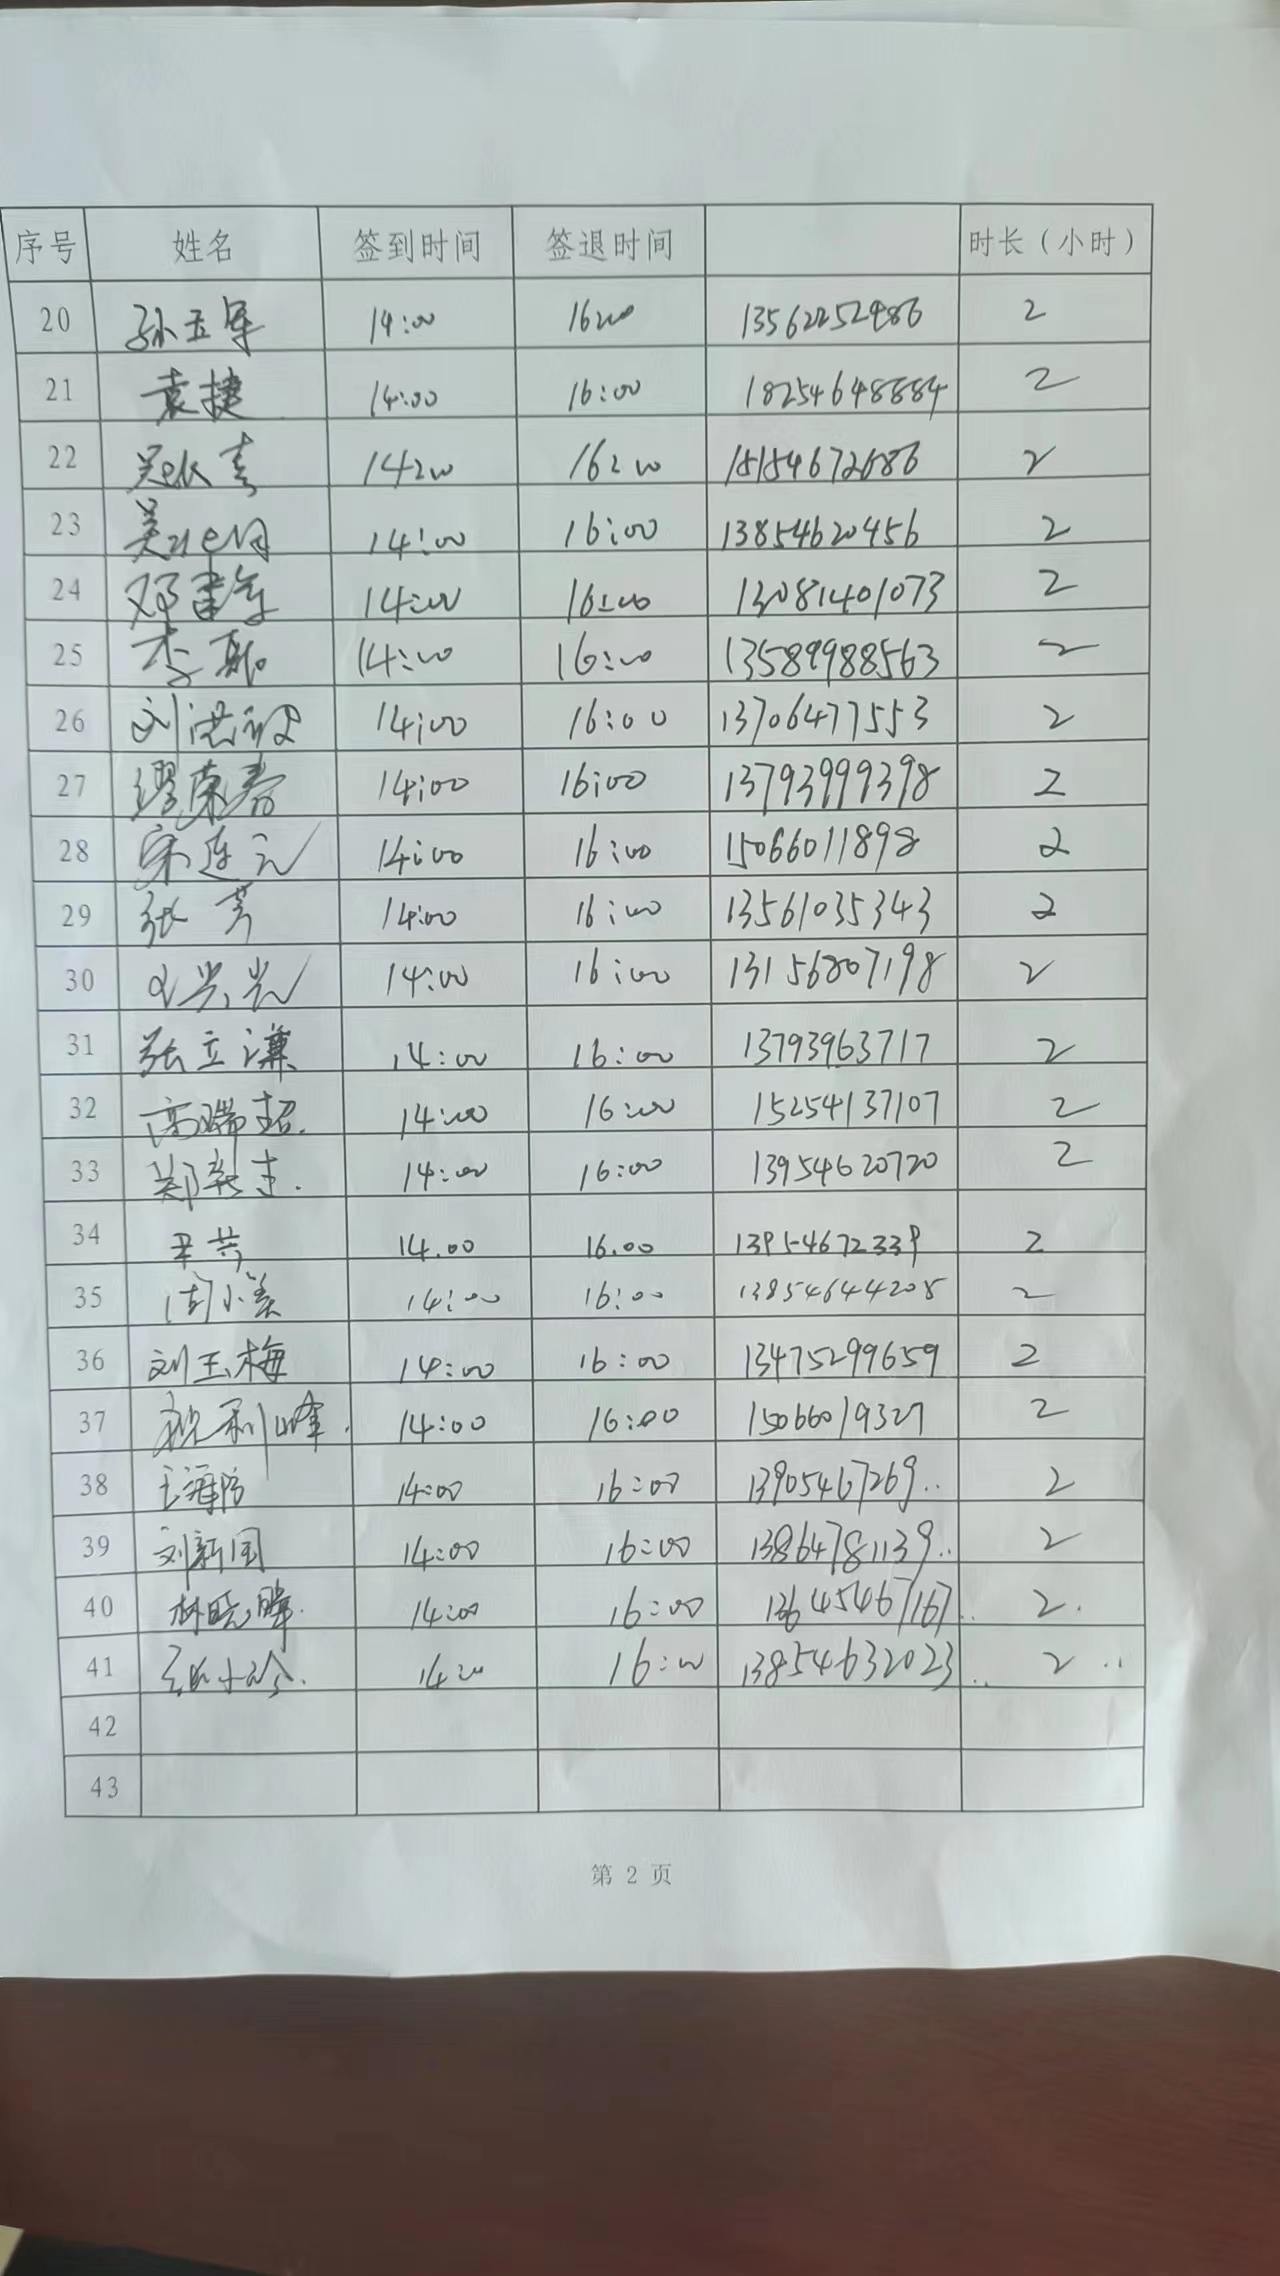 序号 姓名 签到时间 签退时间 时长（小时）
20 孙玉军 14:00 16:00 13562252986 2
21 袁捷 14:00 16:00 18254648884 2
22 14:00 16:00 15154672686 2
23 14:00 16:00 13854620456 2
24 邓建军 14:00 16:00 13081401073 2
25 李 14:00 16:00 13589988563 2
26 刘洪 14:00 16:00 13706477553 2
27 缪东春 14:00 16:00 13793999398 2
28 宋连元 14:00 16:00 15066011898 2
29 张芳 14:00 16:00 13561035343 2
30 14:00 16:00 13156807198 2
31 张立谦 14:00 16:00 13793963717 2
32 高瑞超. 14:00 16:00 15254137107 2
33 郑 14:00 16:00 13954620720 2
34 14.00 16.00 13954672339 2
35 周小美 14:00 16:00 13854644208 2
36 刘玉梅 14:00 16:00 13475299659 2
37 祝利峰. 14:00 16:00 15066019327 2
38 王海防 14:00 16:00 13905467269.. 2
39 刘新国 14:00 16:00 13864781139.. 2
40 林晓峰. 14:00 16:00 13645467167.. 2.
41 14:00 16:00 13854632023.. 2 ..
42
43
第 2 页